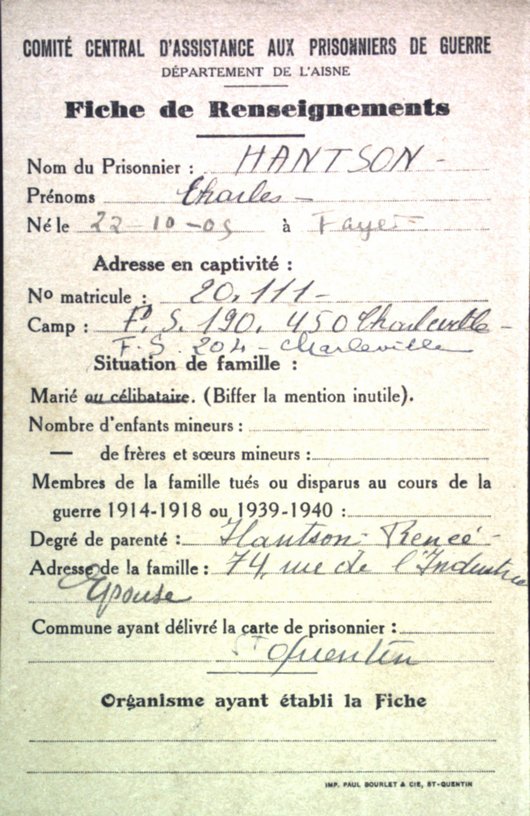 COMITÉ CENTRAL D'ASSISTANCE AUX PRISONNIERS DE GUERRE
DÉPARTEMENT DE L'AISNE
Fiche de Renseignements
Nom du Prisonnier : HANTSON -
Prénoms Charles -
Né le 22-10-05 à Fayet -
Adresse en captivité :
No matricule : 20.111 -
Camp : F.S. 190. 450 Charleville -
F.S. 204 - Charleville
Situation de famille :
Marié ou célibataire. (Biffer la mention inutile).
Nombre d'enfants mineurs :
— de frères et sœurs mineurs :
Membres de la famille tués ou disparus au cours de la
guerre 1914-1918 ou 1939-1940 :
Degré de parenté : Hantson Renée -
Adresse de la famille : 74, rue de l'Industrie
Epouse
Commune ayant délivré la carte de prisonnier :
St Quentin
Organisme ayant établi la Fiche
IMP. PAUL BOURLET & CIE, ST-QUENTIN